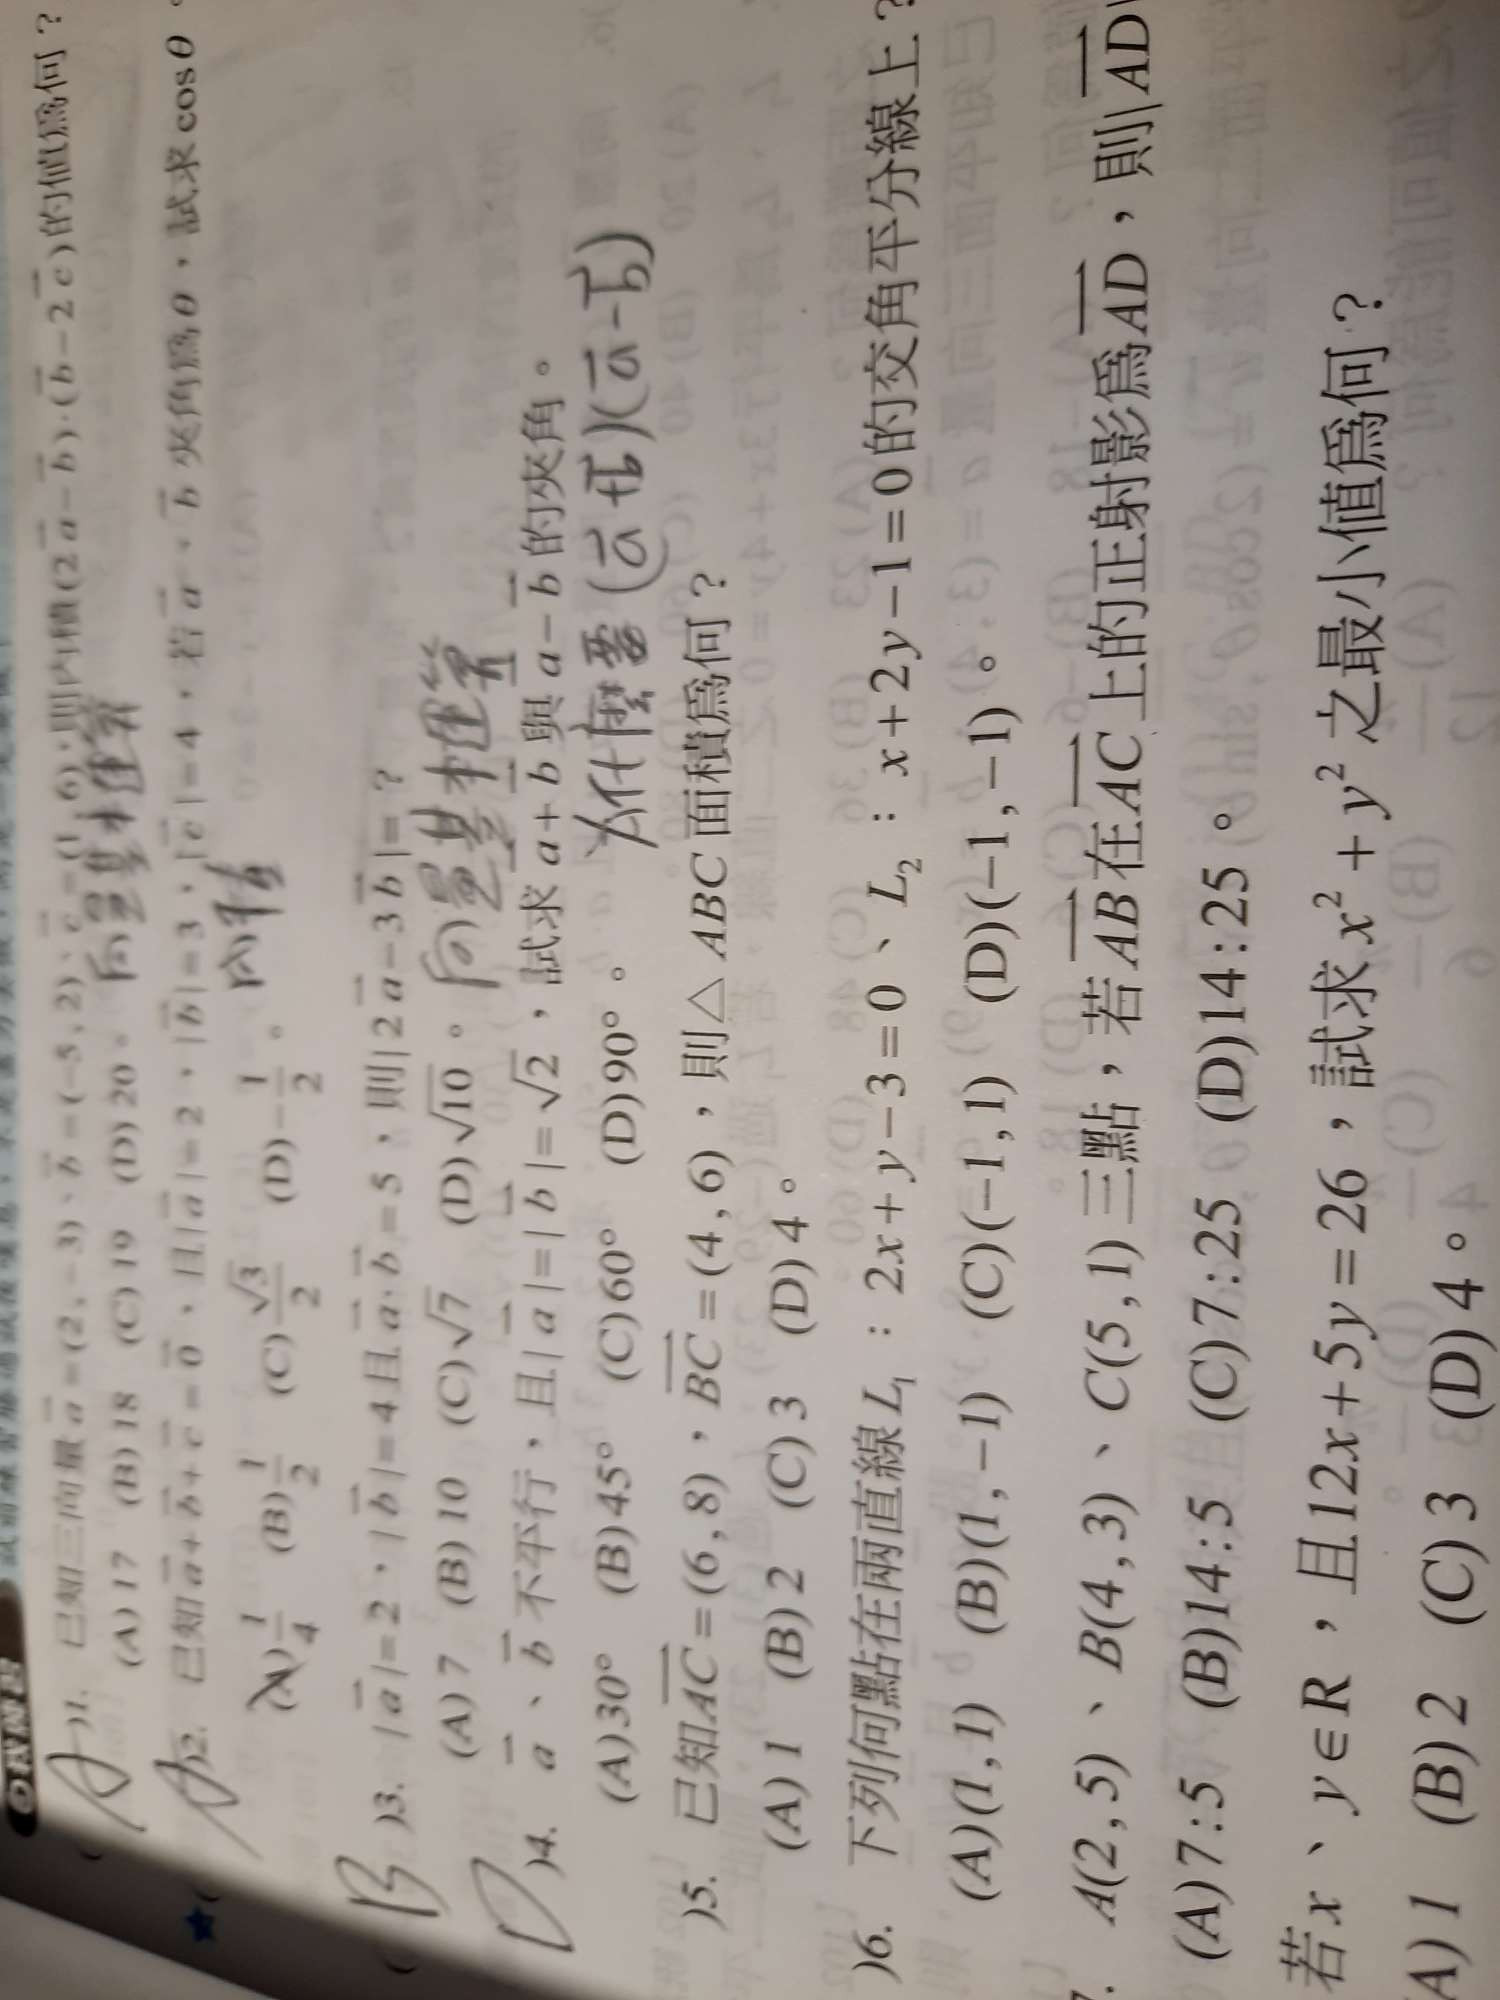 )1. 已知三向量 a = (2, -3)、b = (-5, 2)、c = (1, 6),則內積(2a - b)·(b - 2c)的值為何?
(A) 17 (B) 18 (C) 19 (D) 20。 向量基本運算
)2. 已知 a + b + c = 0,且|a| = 2、|b| = 3、|c| = 4,若 a、b 夾角為θ,試求 cosθ。
(A) 1/4 (B) 1/2 (C) √3/2 (D) -1/2。
)3. |a| = 2、|b| = 4 且 a·b = 5,則|2a - 3b| = ?
(A) 7 (B) 10 (C) √7 (D) √10。 向量基本運算
)4. a、b 不平行,且|a| = |b| = √2,試求 a + b 與 a - b 的夾角。
(A) 30° (B) 45° (C) 60° (D) 90°。 為什麼要(a + b)(a - b)
)5. 已知 AC = (6, 8),BC = (4, 6),則△ABC 面積為何?
(A) 1 (B) 2 (C) 3 (D) 4。
)6. 下列何點在兩直線 L₁:2x + y - 3 = 0、L₂:x + 2y - 1 = 0 的交角平分線上?
(A)(1, 1) (B)(1, -1) (C)(-1, 1) (D)(-1, -1)。
A(2, 5)、B(4, 3)、C(5, 1)三點,若 AB 在 AC 上的正射影為 AD,則|AD|
(A) 7:5 (B) 14:5 (C) 7:25 (D) 14:25。
若 x、y ∈ R,且 12x + 5y = 26,試求 x² + y² 之最小值為何?
A) 1 (B) 2 (C) 3 (D) 4。